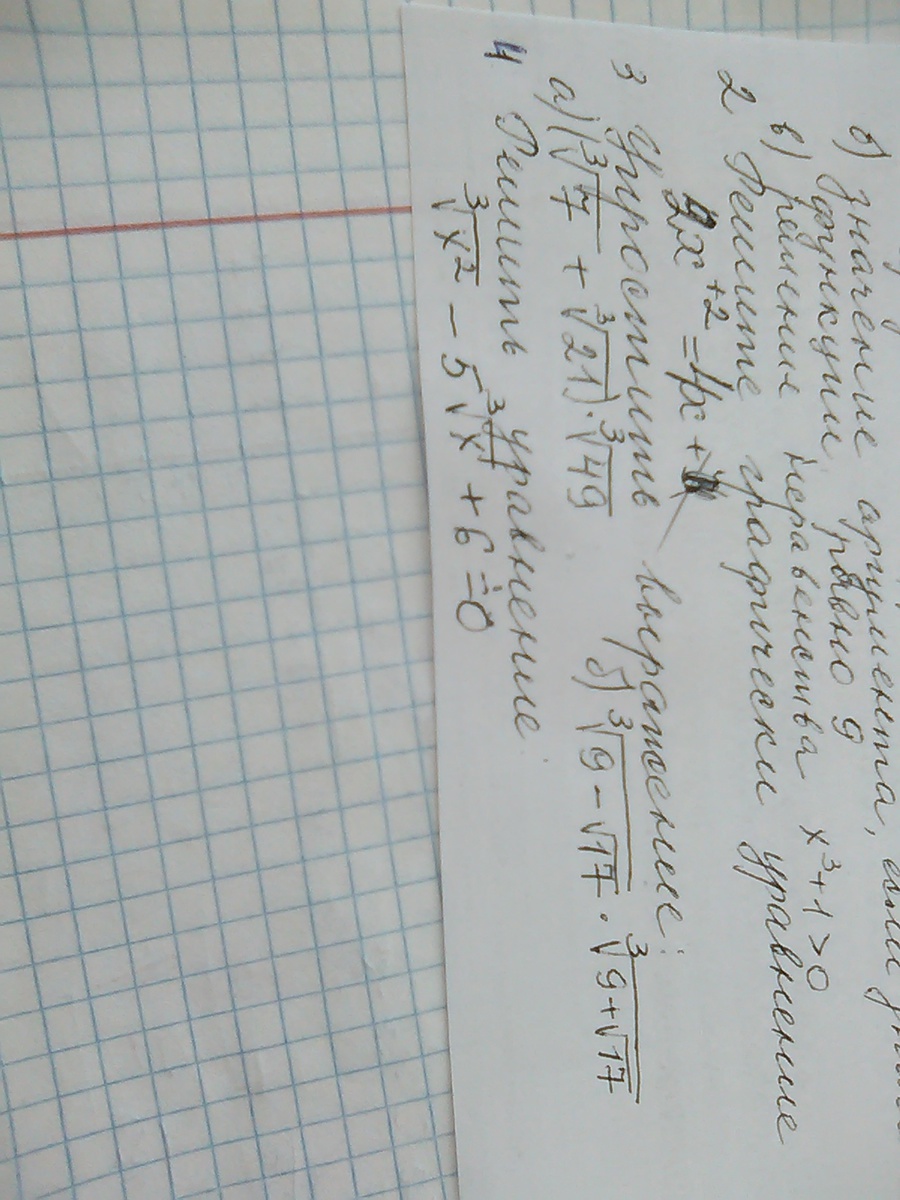 б) значение аргумента, если
функции равно 9
в) решение неравенства x³+1>0
2 Решите графически уравнение
x⁺² = 4x +
3 Упростить выражение:
а) (∛7 + ∛21)·∛49 б) ∛(9-√17) · ∛(9+√17)
4 Решить уравнение
∛x² - 5∛x + 6 = 0